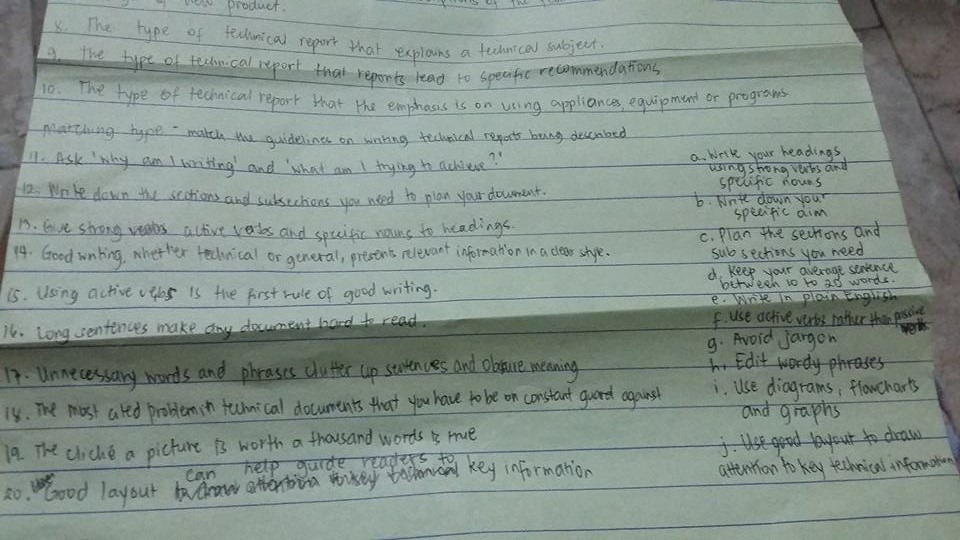 product.
8. The type of technical report that explains a technical subject.
9. The type of technical report that reports lead to specific recommendations
10. The type of technical report that the emphasis is on using appliances, equipment or programs
Matching type - match the guidelines on writing technical reports being described
11. Ask 'why am I writing' and 'what am I trying to achieve?'
12. Write down the sections and subsections you need to plan your document.
13. Give strong verbs active verbs and specific nouns to headings.
14. Good writing, whether technical or general, presents relevant information in a clear style.
15. Using active verbs is the first rule of good writing.
16. Long sentences make any document hard to read.
17. Unnecessary words and phrases clutter up sentences and obscure meaning
18. The most cited problem in technical documents that you have to be on constant guard against
19. The cliché a picture is worth a thousand words is true
20. Good layout can help guide readers to key information
a. Write your headings
using strong verbs and
specific nouns
b. Write down your
specific aim
c. Plan the sections and
sub sections you need
d. Keep your average sentence
between 10 to 20 words.
e. Write in plain English
f. Use active verbs rather than passive
verbs
g. Avoid jargon
h. Edit wordy phrases
i. Use diagrams, flowcharts
and graphs
j. Use good layout to draw
attention to key technical information